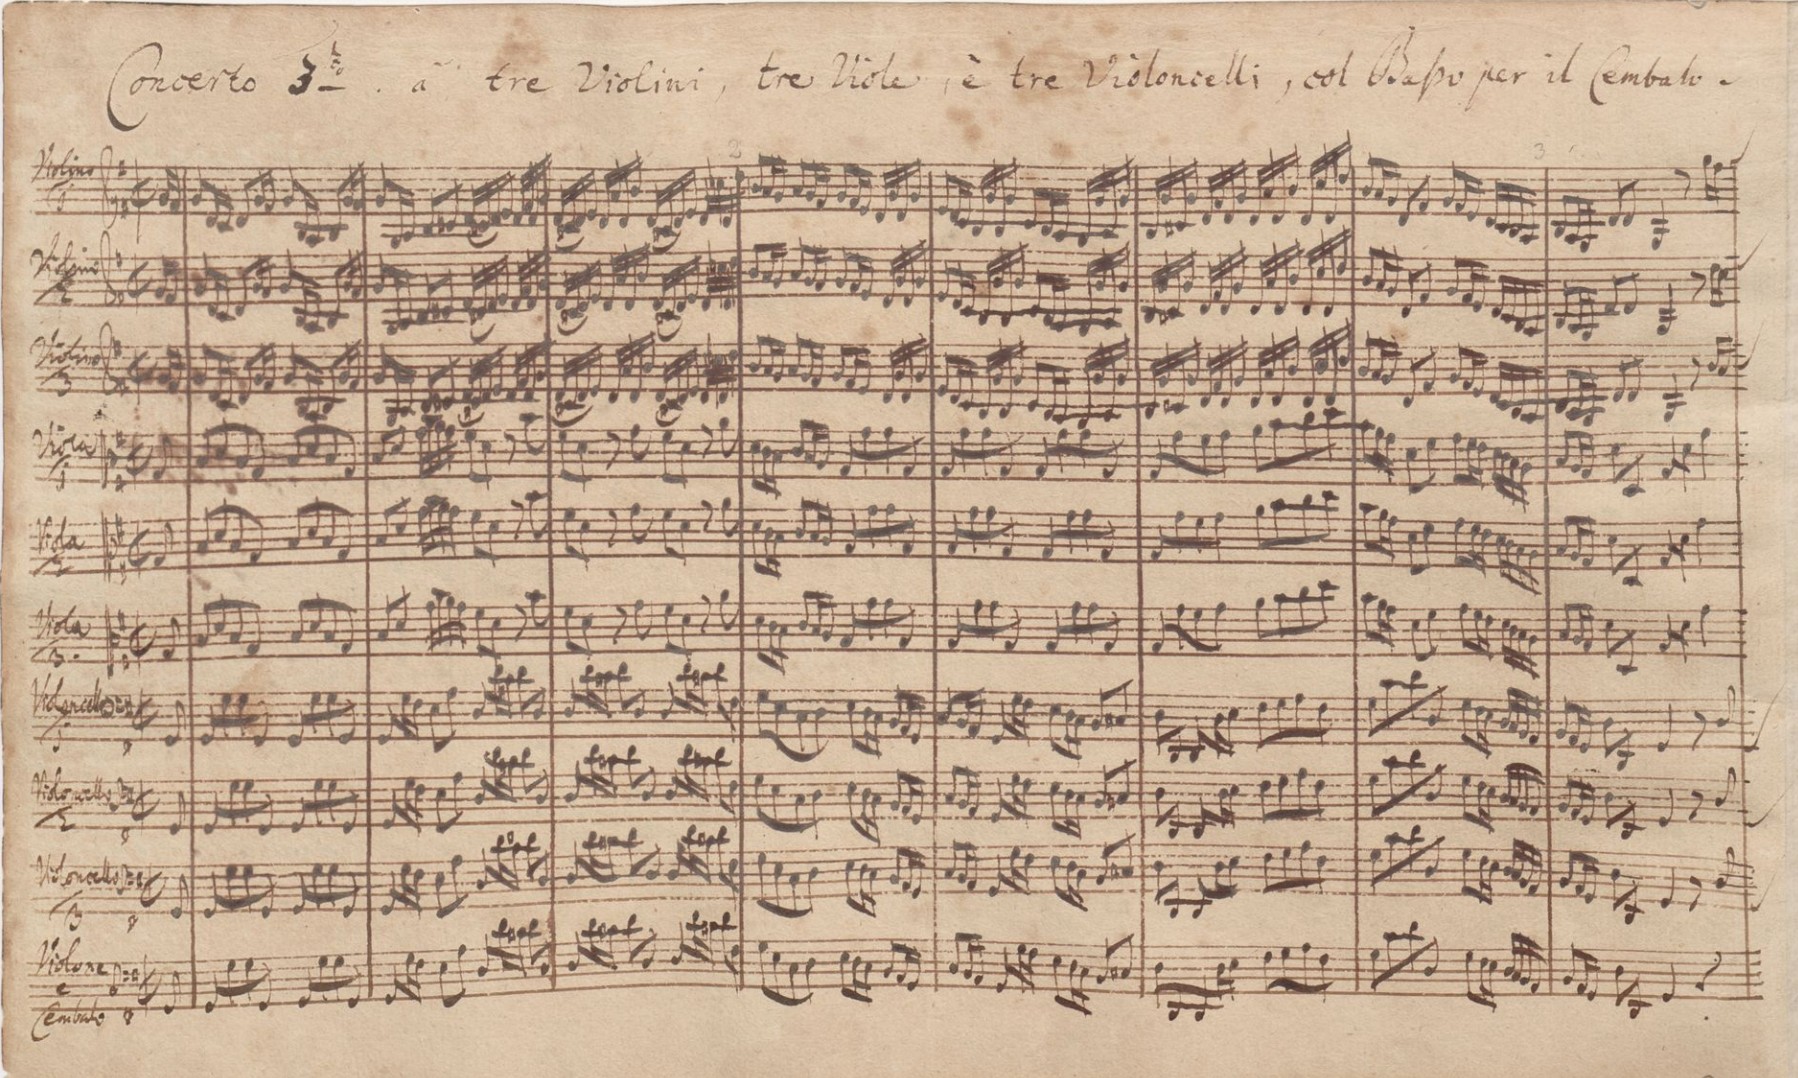 Concerto 3to. â tre Violini, tre Viole, è tre Violoncelli, col Baßo per il Cembalo.
3
3
Violino
1
Violino
2
Violino
3
Viola
1
Viola
2
Viola
3.
Violoncello
1
Violoncello
2
Violoncello
3
Violone
e
Cembalo